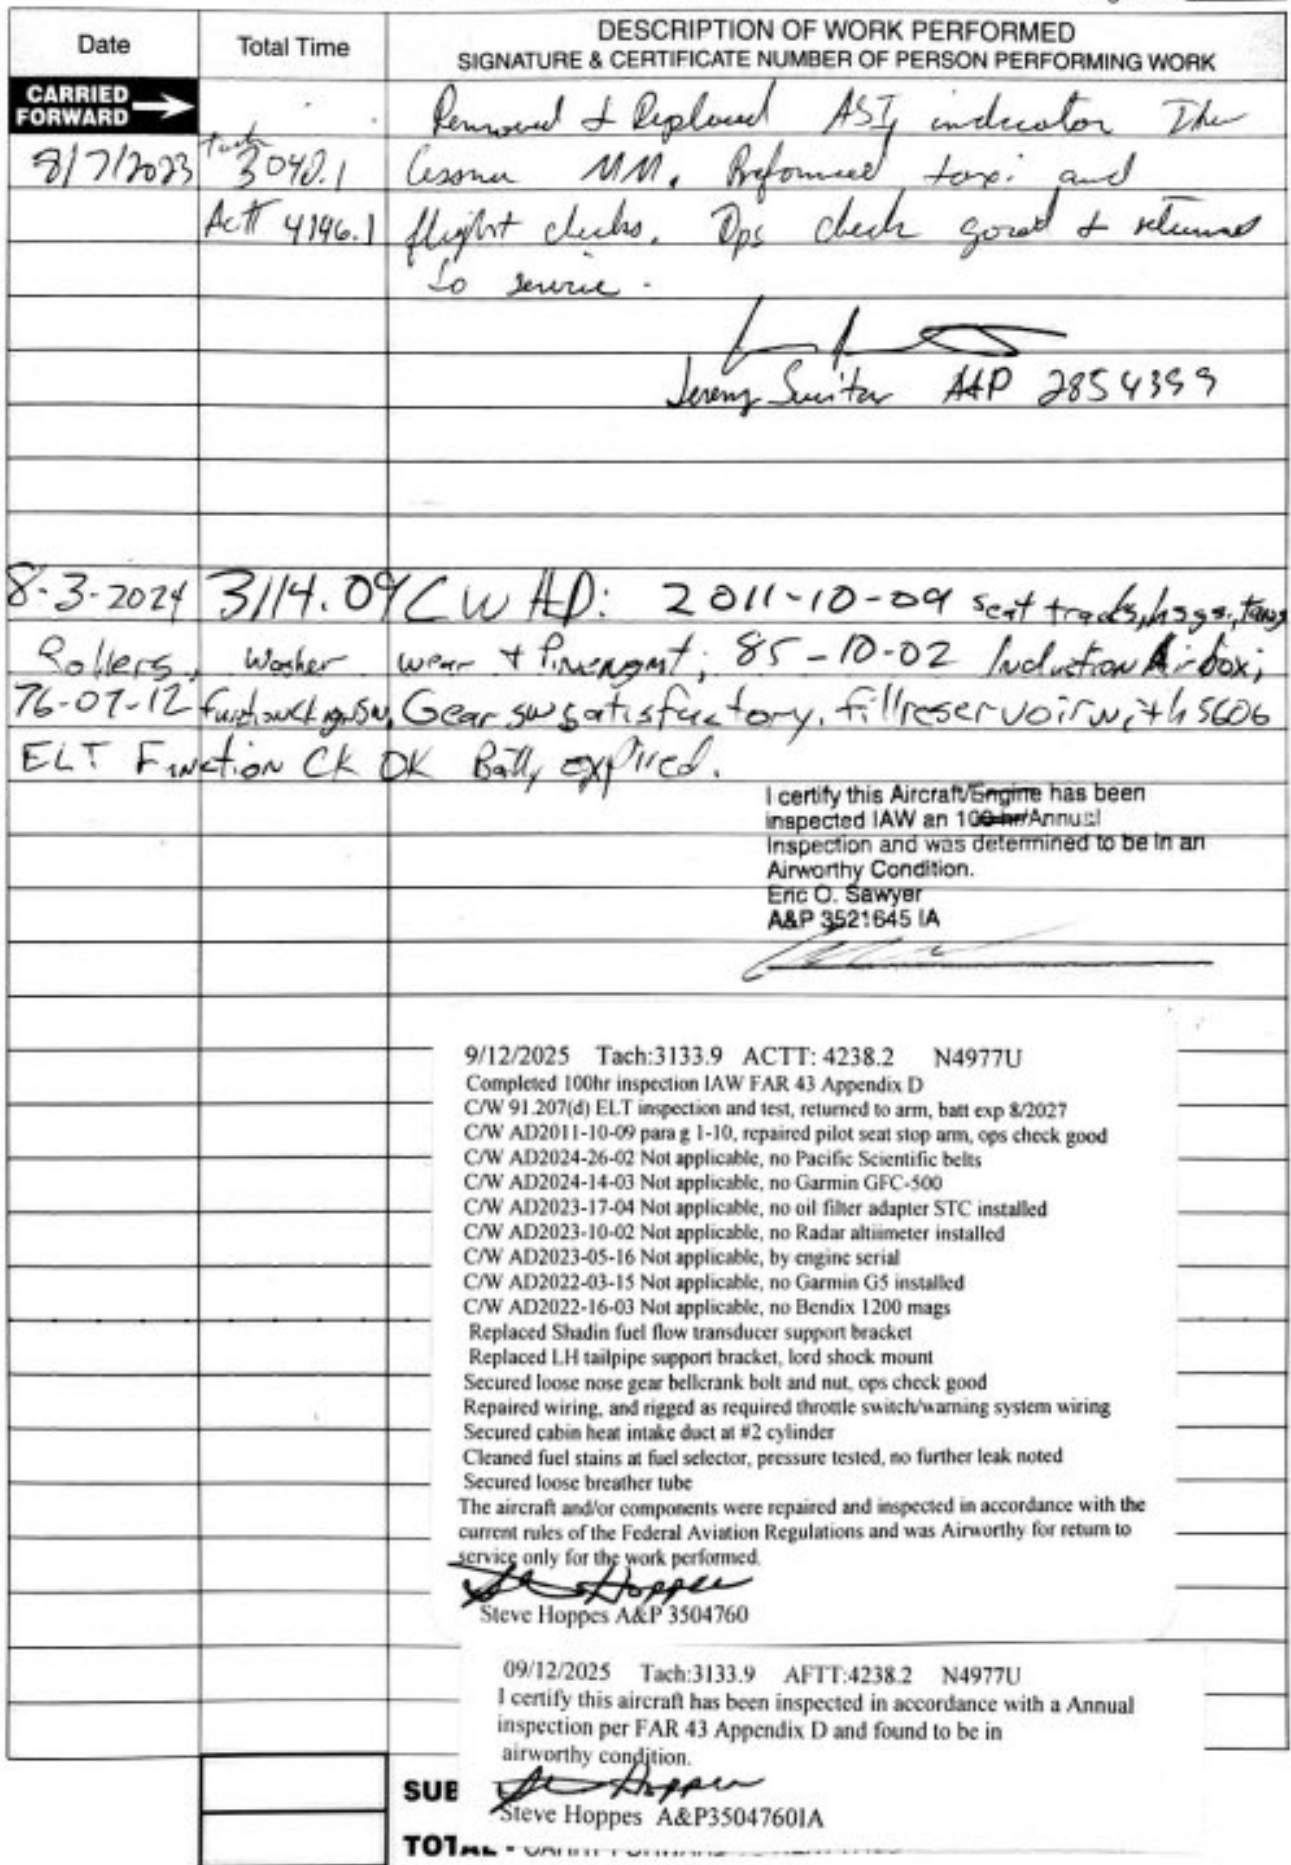 Date Total Time DESCRIPTION OF WORK PERFORMED
SIGNATURE & CERTIFICATE NUMBER OF PERSON PERFORMING WORK
CARRIED FORWARD
Removed & Replaced ASI, indicator
8/7/2023 Tach 3040.1 Cessna MM. Preformed taxi and
ACTT 4146.1 flight checks. Ops check good & returned
to service.
Jeremy A&P
8-3-2024 3114.09 CW AD: 2011-10-09 seat tracks, hsgs., tangs
Rollers, Washer wear & ; 85-10-02 Induction Airbox;
76-07-12 Gear sw satisfactory. fill reservoir with 5606
ELT Function CK OK Batty expired.
I certify this Aircraft/Engine has been
inspected IAW an 100 hr/Annual
Inspection and was determined to be in an
Airworthy Condition.
Eric O. Sawyer
A&P 3521645 IA
9/12/2025 Tach:3133.9 ACTT: 4238.2 N4977U
Completed 100hr inspection IAW FAR 43 Appendix D
C/W 91.207(d) ELT inspection and test, returned to arm, batt exp 8/2027
C/W AD2011-10-09 para g 1-10, repaired pilot seat stop arm, ops check good
C/W AD2024-26-02 Not applicable, no Pacific Scientific belts
C/W AD2024-14-03 Not applicable, no Garmin GFC-500
C/W AD2023-17-04 Not applicable, no oil filter adapter STC installed
C/W AD2023-10-02 Not applicable, no Radar altiimeter installed
C/W AD2023-05-16 Not applicable, by engine serial
C/W AD2022-03-15 Not applicable, no Garmin G5 installed
C/W AD2022-16-03 Not applicable, no Bendix 1200 mags
Replaced Shadin fuel flow transducer support bracket
Replaced LH tailpipe support bracket, lord shock mount
Secured loose nose gear bellcrank bolt and nut, ops check good
Repaired wiring, and rigged as required throttle switch/warning system wiring
Secured cabin heat intake duct at #2 cylinder
Cleaned fuel stains at fuel selector, pressure tested, no further leak noted
Secured loose breather tube
The aircraft and/or components were repaired and inspected in accordance with the
current rules of the Federal Aviation Regulations and was Airworthy for return to
service only for the work performed.
Steve Hoppes A&P 3504760
09/12/2025 Tach:3133.9 AFTT:4238.2 N4977U
I certify this aircraft has been inspected in accordance with a Annual
inspection per FAR 43 Appendix D and found to be in
airworthy condition.
SUB
Steve Hoppes A&P3504760IA
TOTAL -